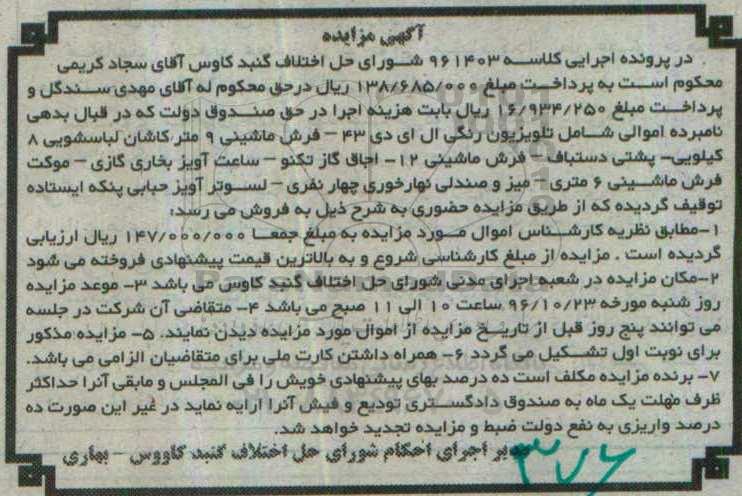 آگهی مزایده
در پرونده اجرایی کلاسه ۹۶۱۴۰۳ شورای حل اختلاف گنبد کاوس آقای سجاد کریمی
محکوم است به پرداخت مبلغ ۱۳۸/۶۸۵/۰۰۰ ریال درحق محکوم له آقای مهدی سندگل و
پرداخت مبلغ ۱۶/۹۳۴/۲۵۰ ریال بابت هزینه اجرا در حق صندوق دولت که در قبال بدهی
نامبرده اموالی شامل تلویزیون رنگی ال ای دی ۴۳ – فرش ماشینی ۹ متر کاشان لباسشویی ۸
کیلویی– پشتی دستباف – فرش ماشینی ۱۲– اجاق گاز تکنو – ساعت آویز بخاری گازی – موکت
فرش ماشینی ۶ متری – میز و صندلی نهارخوری چهار نفری – لسوتر آویز حبابی پنکه ایستاده
توقیف گردیده که از طریق مزایده حضوری به شرح ذیل به فروش می رسد:
۱–مطابق نظریه کارشناس اموال مورد مزایده به مبلغ جمعا ۱۴۷/۰۰۰/۰۰۰ ریال ارزیابی
گردیده است . مزایده از مبلغ کارشناسی شروع و به بالاترین قیمت پیشنهادی فروخته می شود
۲–مکان مزایده در شعبه اجرای مدنی شورای حل اختلاف گنبد کاوس می باشد ۳– موعد مزایده
روز شنبه مورخه ۹۶/۱۰/۲۳ ساعت ۱۰ الی ۱۱ صبح می باشد ۴– متقاضی آن شرکت در جلسه
می توانند پنج روز قبل از تاریخ مزایده از اموال مورد مزایده دیدن نمایند. ۵– مزایده مذکور
برای نوبت اول تشکیل می گردد ۶– همراه داشتن کارت ملی برای متقاضیان الزامی می باشد.
۷– برنده مزایده مکلف است ده درصد بهای پیشنهادی خویش را فی المجلس و مابقی آنرا حداکثر
ظرف مهلت یک ماه به صندوق دادگستری تودیع و فیش آنرا ارایه نماید در غیر این صورت ده
درصد واریزی به نفع دولت ضبط و مزایده تجدید خواهد شد.
مدیر اجرای احکام شورای حل اختلاف گنبد کاووس – بهاری
۳۷۶